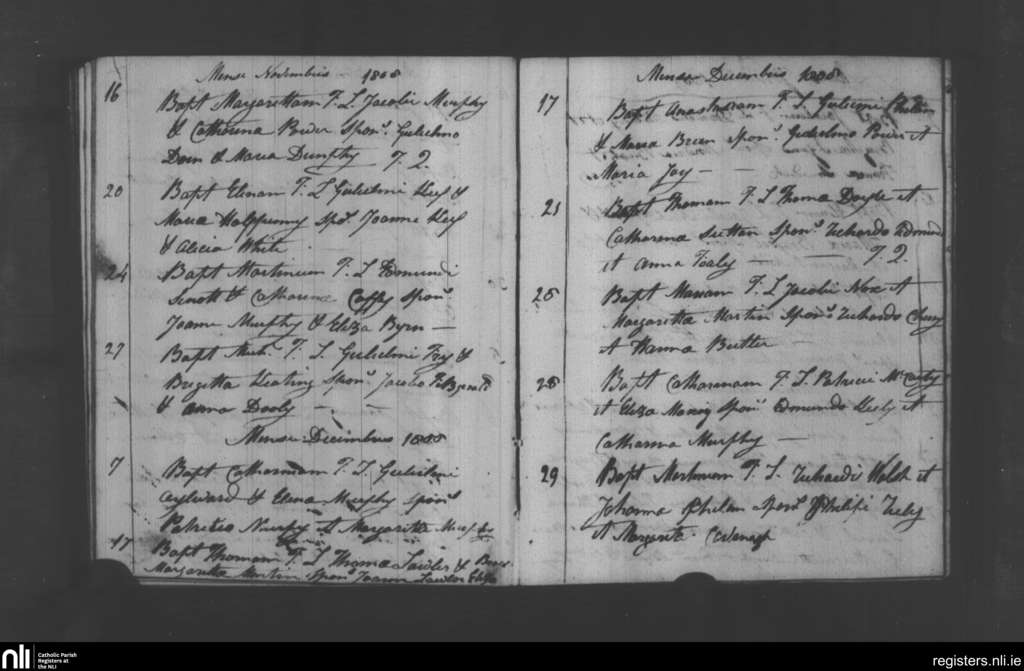 Mense Novembris 1808
16 Bapt Margarettam F. L. Jacobi Murphy
& Catharina Power Spon. Gulielmo
& Maria Dunphy T. Q.
20 Bapt Elenam F. L Gulielmi Kery &
Maria Halfpenny Spo. Joanne Kery
& Alicia White
24 Bapt Martinum F. L Edmundi
Sinott & Catharina Caffry Spon.
Joanne Murphy & Eliza Byrn
27 Bapt Mich. F. L. Gulielmi Foy &
Brigetta Keating Spon. Jacobo FitzGerald
& Anna Dooly
Mense Decimbris 1808
7 Bapt Catharinam F. L. Gulielmi
Aylward & Elena Murphy Spon.
Patricio Murphy & Margaritta Murphy
17 Bapt Thomam F. L Thoma Lawler &
Margaretta Martin Spon. Joanne Lawlor Eliza
Mense Decembris 1808
17 Bapt Anastasiam F. L. Gulielmi Phelan
& Maria Breen Spon. Gulielmo Power et
Maria Joy
21 Bapt Thomam F. L Thoma Doyle et
Catharina Sutton Spon. Richardo Edmund
et Anna Fealy T. Q.
28 Bapt Mariam F. L Jacobi Nox et
Margaretta Martin Spon. Richardo
et Hanna Butler
28 Bapt Catharinam F. L. Patricii McCarty
et Eliza Spon. Edmundo Kely et
Catharina Murphy
29 Bapt F. L. Richardi Welsh et
Johanna Phelan Spon. Philipi
et Margarita Cavanagh
nli Catholic Parish
Registers at
the NLI
registers.nli.ie